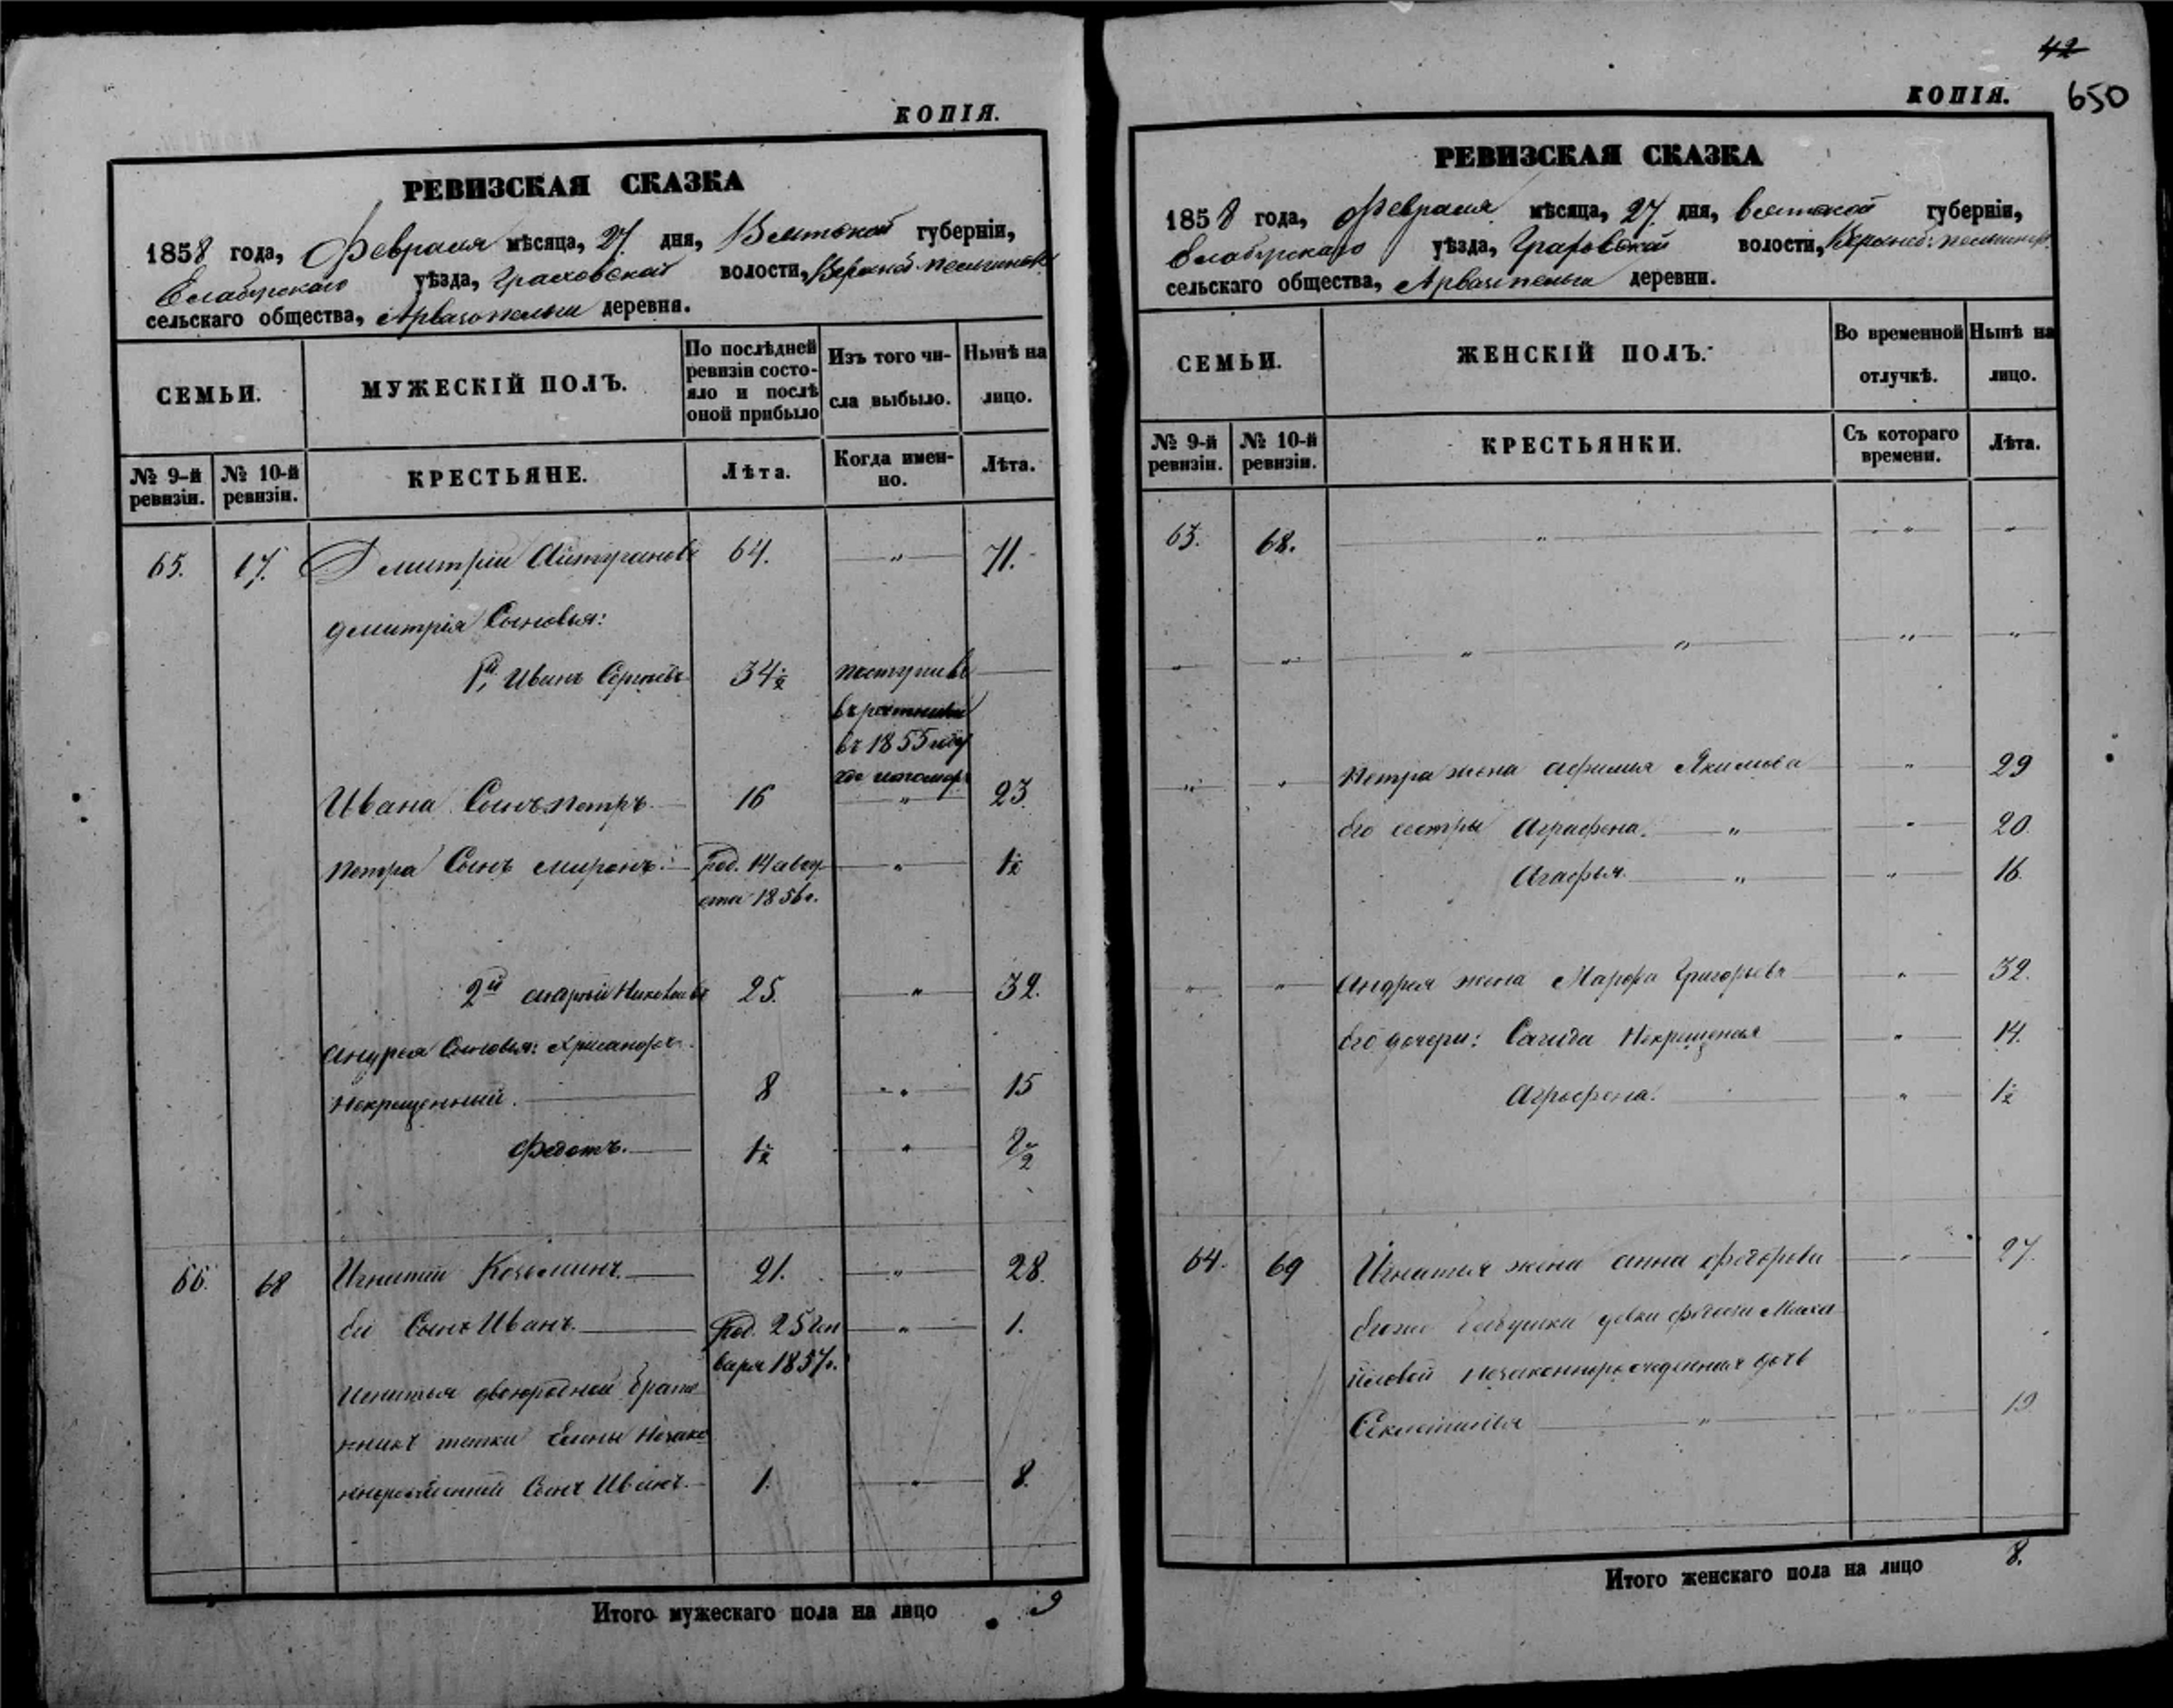 КОПІЯ.
РЕВИЗСКАЯ СКАЗКА
1858 года, Февраля мѣсяца, 27 дня, Вятской губерніи,
Елабужскаго уѣзда, Граховской волости,
сельскаго общества, деревня.
СЕМЬИ.
МУЖЕСКІЙ ПОЛЪ.
По послѣдней ревизіи состо-
яло и послѣ
оной прибыло
Изъ того чи-
сла выбыло.
Нынѣ на
лицо.
№ 9-й
ревизіи.
№ 10-й
ревизіи.
КРЕСТЬЯНЕ.
Лѣта.
Когда имен-
но.
Лѣта.
65. 67. Дмитрій 64. — " — 71.
Дмитрія Сыновья:
1й, Иванъ Сергѣевъ 34½ поступилъ —
въ ратники
въ 1855 году
Ивана Сынъ Петръ — 16 — " — 23.
Петра Сынъ Миронъ. — род. 14 авгу- — " — 1½
ста 1856 г.
2й Андрей Николаевъ 25. — " — 32.
Андрея Сыновья: Хрисанфъ
Некрещенный. — 8 — " — 15
Федотъ. — 1½ — " — 8½
66. 68 Игнатій Козьминъ. — 21. — " — 28.
Сынъ Иванъ. — род. 25 Ген- — " — 1.
варя 1857 г.
Игнатья двоюродной
тетки Елены Незако-
Сынъ Иванъ. — 1. — " — 8.
Итого мужескаго пола на лицо 9
42
КОПІЯ. 650
РЕВИЗСКАЯ СКАЗКА
1858 года, Февраля мѣсяца, 27 дня, Вятской губерніи,
Елабужскаго уѣзда, Граховской волости,
сельскаго общества, деревни.
СЕМЬИ.
ЖЕНСКІЙ ПОЛЪ.
Во временной
отлучкѣ.
Нынѣ на
лицо.
№ 9-й
ревизіи.
№ 10-й
ревизіи.
КРЕСТЬЯНКИ.
Съ котораго
времени.
Лѣта.
63. 68. — " — " — "
" " " " " "
" " Петра жена Афимия Якимова — " — 29
Его сестры Аграфена. — " — " — 20
Агафья. — " — " — 16
" " Андрея жена Марфа Григорьева — " — 32.
Его дочери: Сагида Некрещеная — " — 14.
Аграфена. — " — 1½
64. 69 Игнатья жена Анна Федорова — " — 27.
девки Миха-
йловой Незаконнорожденная дочь
Секлетинья — " — " — 19
Итого женскаго пола на лицо 8.